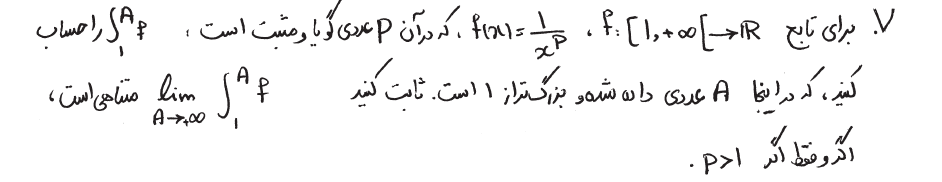 ۷. برای تابع f: [1, +∞[ → ℝ ، f(x) = 1/x^p ، که در آن p عددی گویا و مثبت است ، ∫₁^A f را حساب
کنید ، که در اینجا A عددی داده شده و بزرگ‌تر از ۱ است. ثابت کنید lim_{A→+∞} ∫₁^A f متناهی است ،
اگر و فقط اگر p>1 .